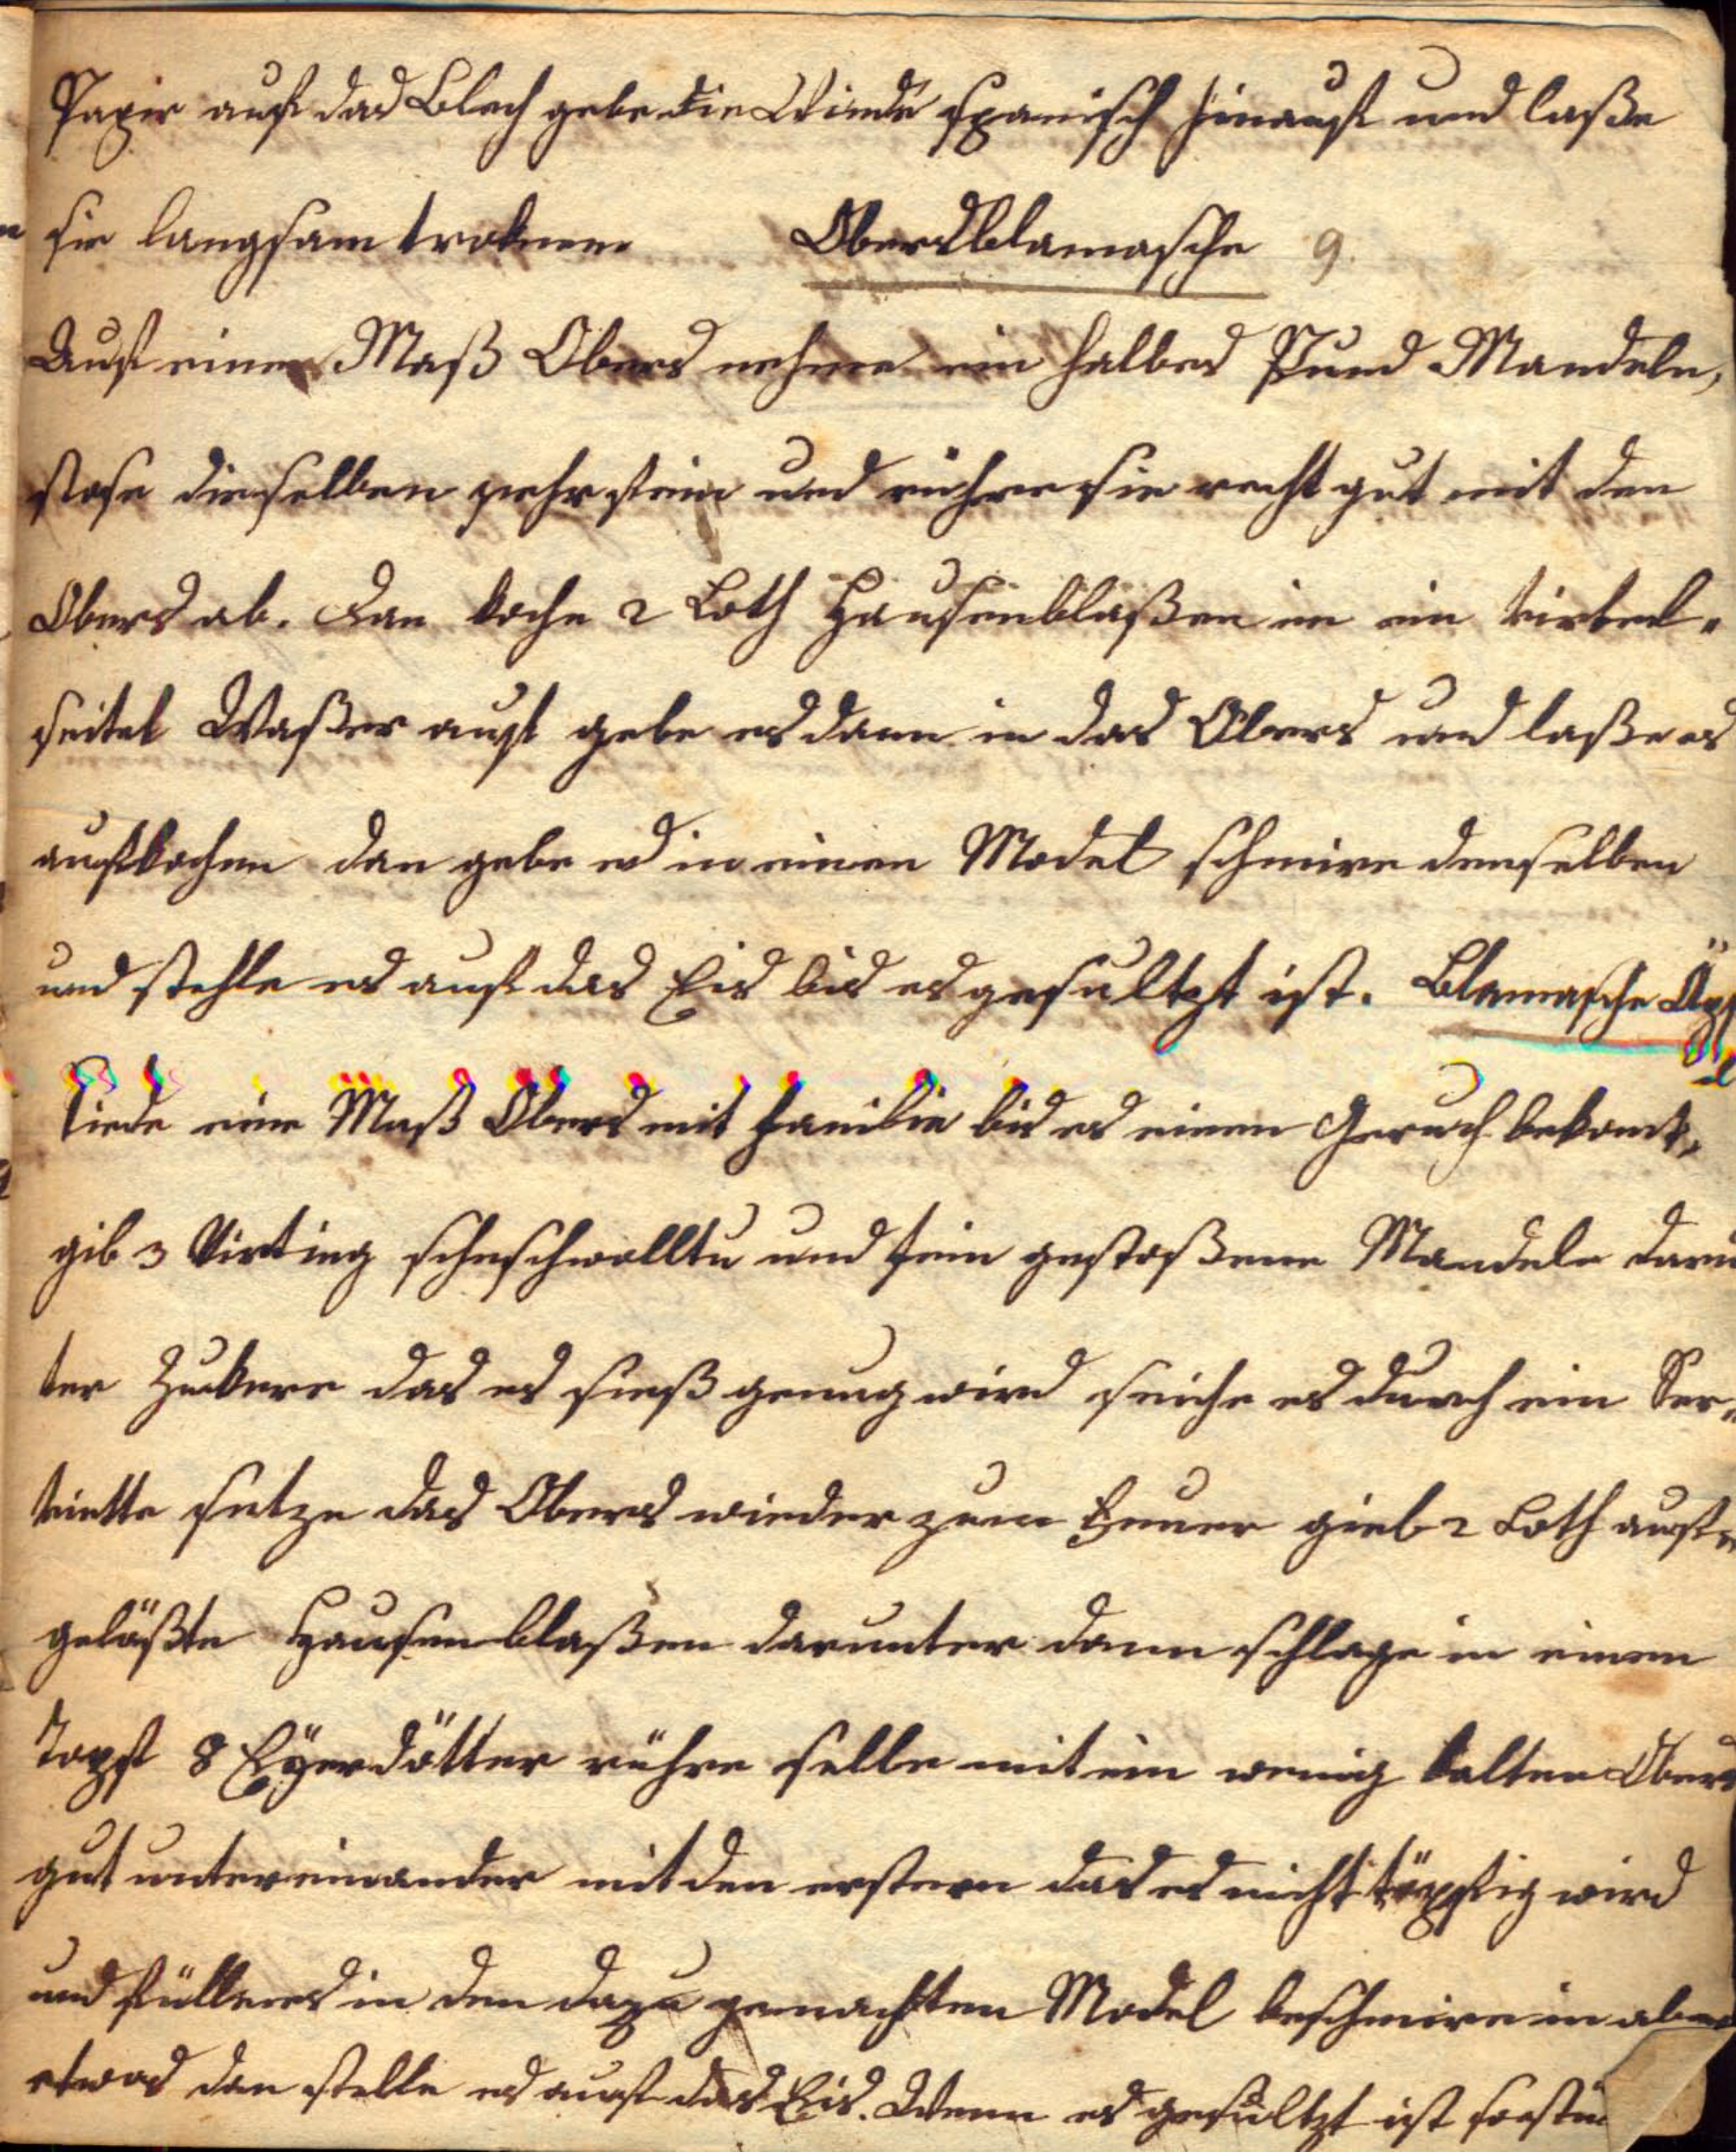 Papir auf das Blech gebe die Winde spanisch hinauf und laße
sie langsam troknen. Obersblamasche 9.
Auf einer Maß Obers nehme ein halbes Pfund Mandeln,
stose dieselben sehr fein und rühre sie recht gut mit den
Obers ab. Dan koche 2 Loth Hausenblaßen in ein virtel-
seitel Waßer auf gebe es dann in das Obers und laße es
aufkochen dan gebe es in einen Model schmire denselben
und stehle es auf das Eis bis es gesultzt ist. Blamasche Äpf
el
Siede eine Maß Obers mit Fanilie bis es einen Geruch bekomt,
gib 3 Virting geschwollte und fein gestoßene Mandeln darun
ter Zukere das es sieß genug wird seiche es durch ein Ser-
viette setze das Obers wieder zum Feuer gieb 2 Loth auf-
gelößte Hausenblaßen darunter dann schlage in einem
Topf 8 Eyerdötter rühre selbe mit ein wenig kalten Obers
gut untereinander mit den erstern das es nicht töpfig wird
und fülle es in den dazu gemachten Model beschmire in aber
etwas dan stelle es auf das Eis. Wenn es gesultzt ist